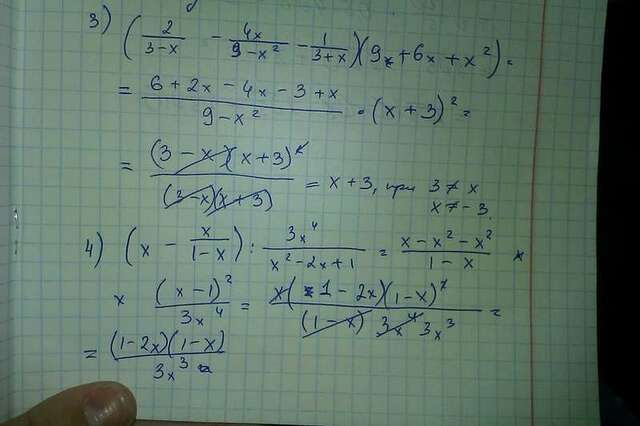 3) (2/(3-x) - 4x/(9-x²) - 1/(3+x))(9+6x+x²)=
= (6+2x-4x-3+x)/(9-x²) · (x+3)² =
= (3-x)(x+3)²/((3-x)(x+3)) = x+3, при 3≠x
x≠-3.
4) (x - x/(1-x)) : 3x⁴/(x²-2x+1) = (x-x²-x²)/(1-x) ×
× (x-1)²/(3x⁴) = x(1-2x)(1-x)²/((1-x) 3x⁴ 3x³) =
= (1-2x)(1-x)/(3x³)